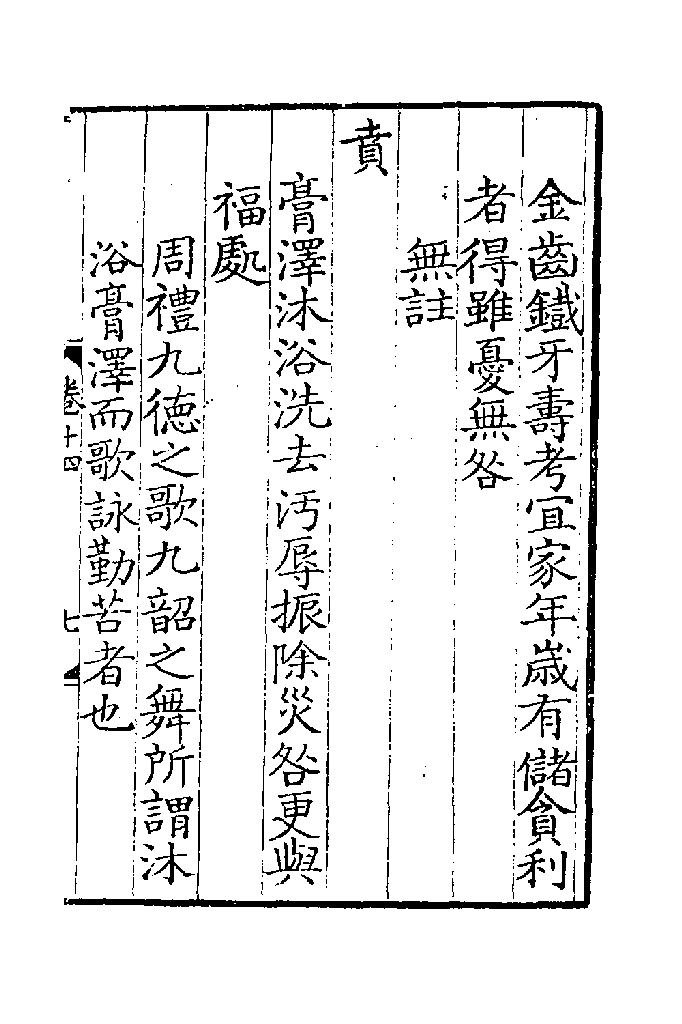 金齒鐵牙壽考宜家年歲有儲貪利
者得雖憂無咎
無註
賁
膏澤沐浴洗去汚辱振除災咎更與
福處
周禮九德之歌九韶之舞所謂沐
浴膏澤而歌詠勤苦者也
卷十四
七